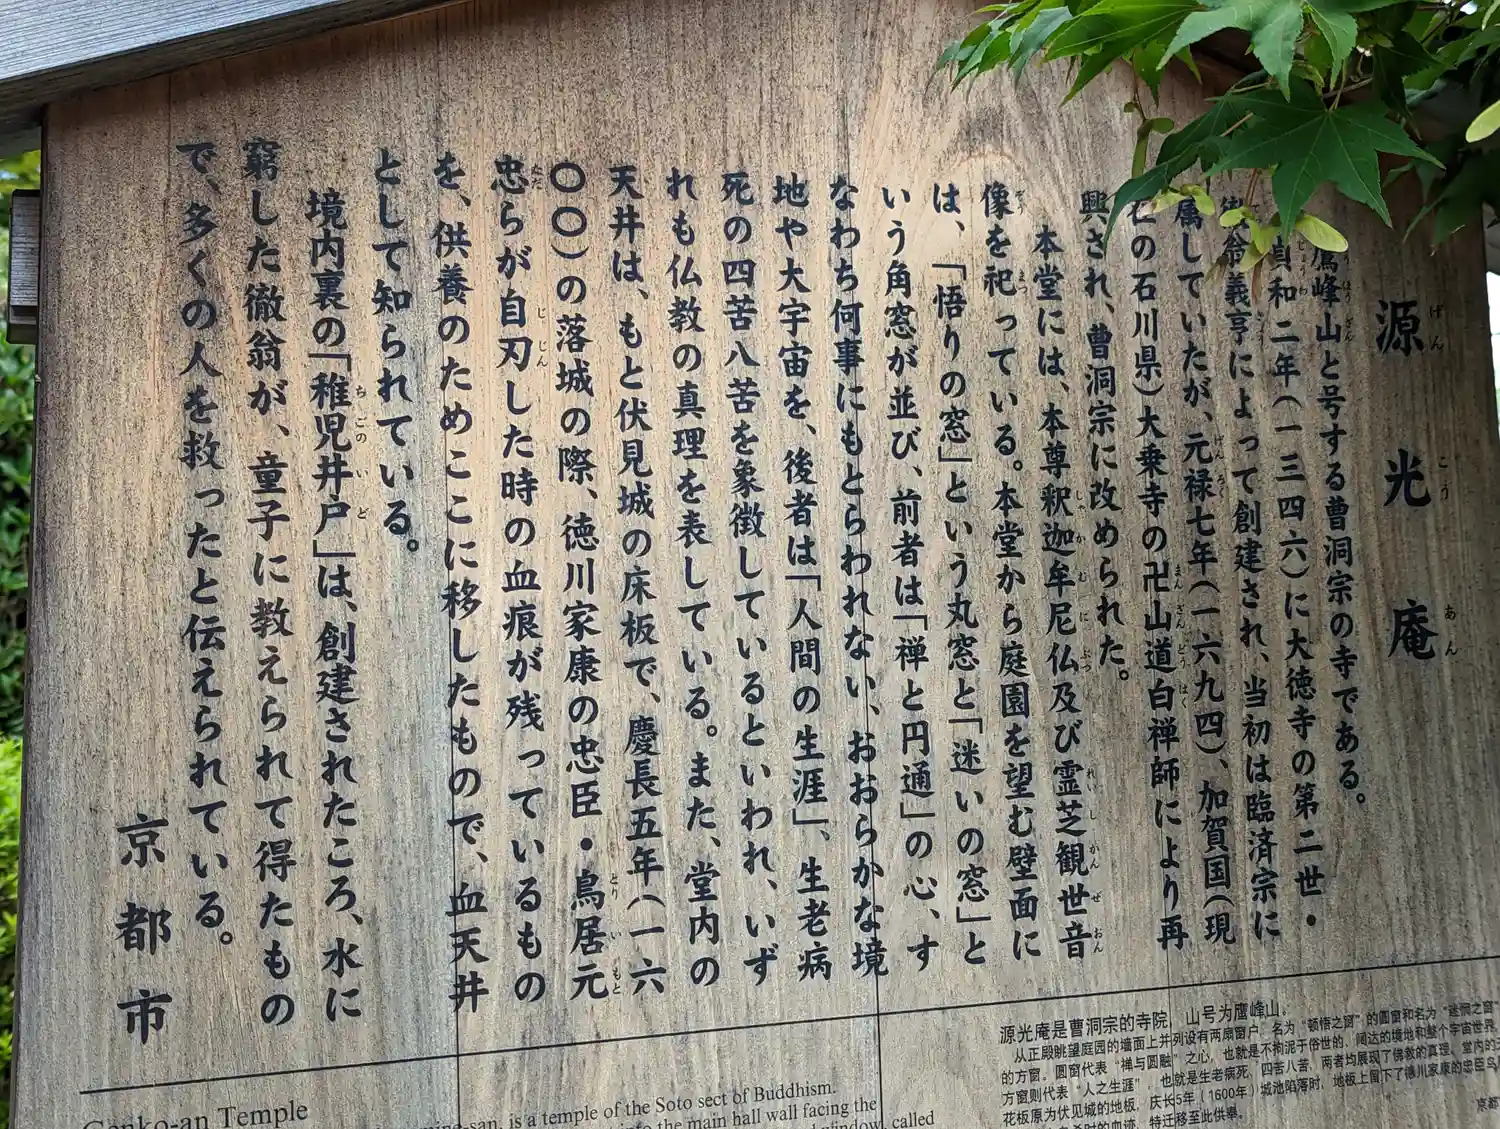 源光庵
げんこうあん
鷹峰山と号する曹洞宗の寺である。
貞和二年(一三四六)に大徳寺の第二世・
徹翁義亨によって創建され、当初は臨済宗に
属していたが、元禄七年(一六九四)、加賀国(現
在の石川県)大乗寺の卍山道白禅師により再
興され、曹洞宗に改められた。
本堂には、本尊釈迦牟尼仏及び霊芝観世音
像を祀っている。本堂から庭園を望む壁面に
は、「悟りの窓」という丸窓と「迷いの窓」と
いう角窓が並び、前者は「禅と円通」の心、す
なわち何事にもとらわれない、おおらかな境
地や大宇宙を、後者は「人間の生涯」、生老病
死の四苦八苦を象徴しているといわれ、いず
れも仏教の真理を表している。また、堂内の
天井は、もと伏見城の床板で、慶長五年(一六
〇〇)の落城の際、徳川家康の忠臣・鳥居元
忠らが自刃した時の血痕が残っているもの
を、供養のためここに移したもので、血天井
として知られている。
境内裏の「稚児井戸」は、創建されたころ、水に
窮した徹翁が、童子に教えられて得たもの
で、多くの人を救ったと伝えられている。
京都市
Genko-an Temple
-san, is a temple of the Soto sect of Buddhism.
into the main hall wall facing the
window, called
源光庵是曹洞宗的寺院，山号为鹰峰山。
从正殿眺望庭园的墙面上并列设有两扇窗户，名为“顿悟之窗”的圆窗和名为“迷惘之窗”
的方窗。圆窗代表“禅与圆融”之心，也就是不拘泥于俗世的、阔达的境地和整个宇宙世界，
方窗则代表“人之生涯”，也就是生老病死、四苦八苦，两者均展现了佛教的真理。堂内的天
花板原为伏见城的地板，庆长5年（1600年）城池陷落时，地板上留下了德川家康的忠臣鸟
特迁移至此供奉。
京都